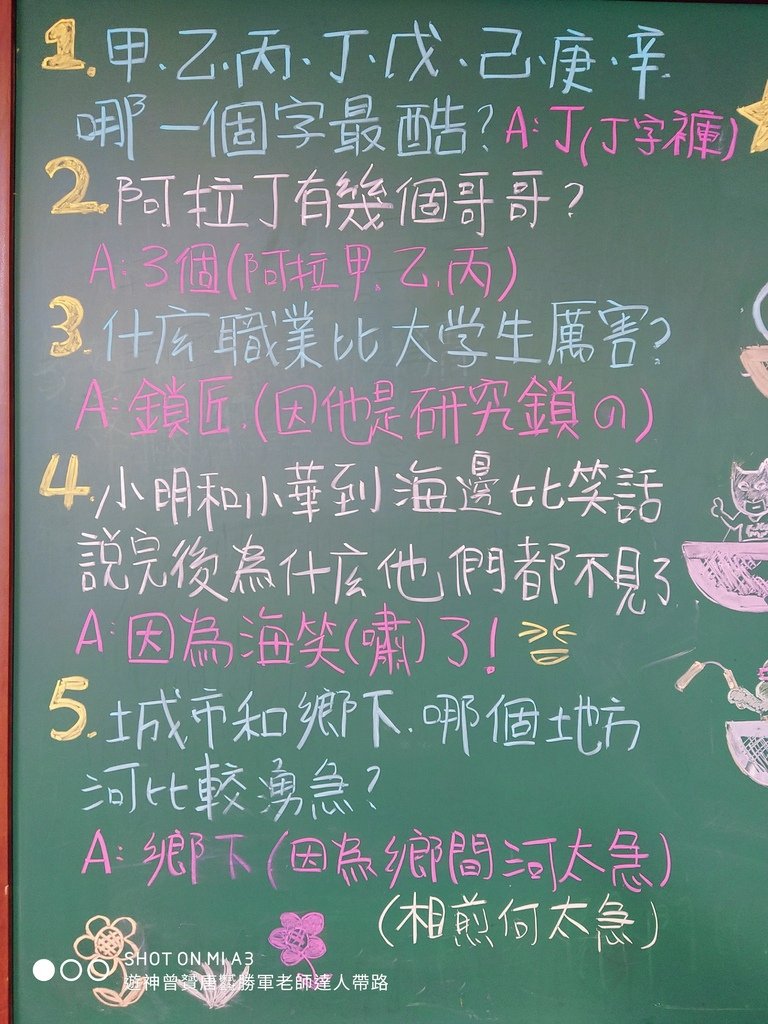 1. 甲、乙、丙、丁、戊、己、庚、辛
哪一個字最酷? A:丁(丁字褲)
2. 阿拉丁有幾個哥哥?
A:3個(阿拉甲、乙、丙)
3. 什庅職業比大学生厲害?
A:鎖匠.(因他是研究鎖の)
4. 小明和小華到海邊比笑話
說完後為什庅他們都不見了
A:因為海笑(嘯)了!
5. 城市和鄉下.哪個地方
河比較湧急?
A:鄉下(因為鄉間河太急)
(相煎何太急)
SHOT ON MI A3
遊神曾寶唐藝勝軍老師達人帶路